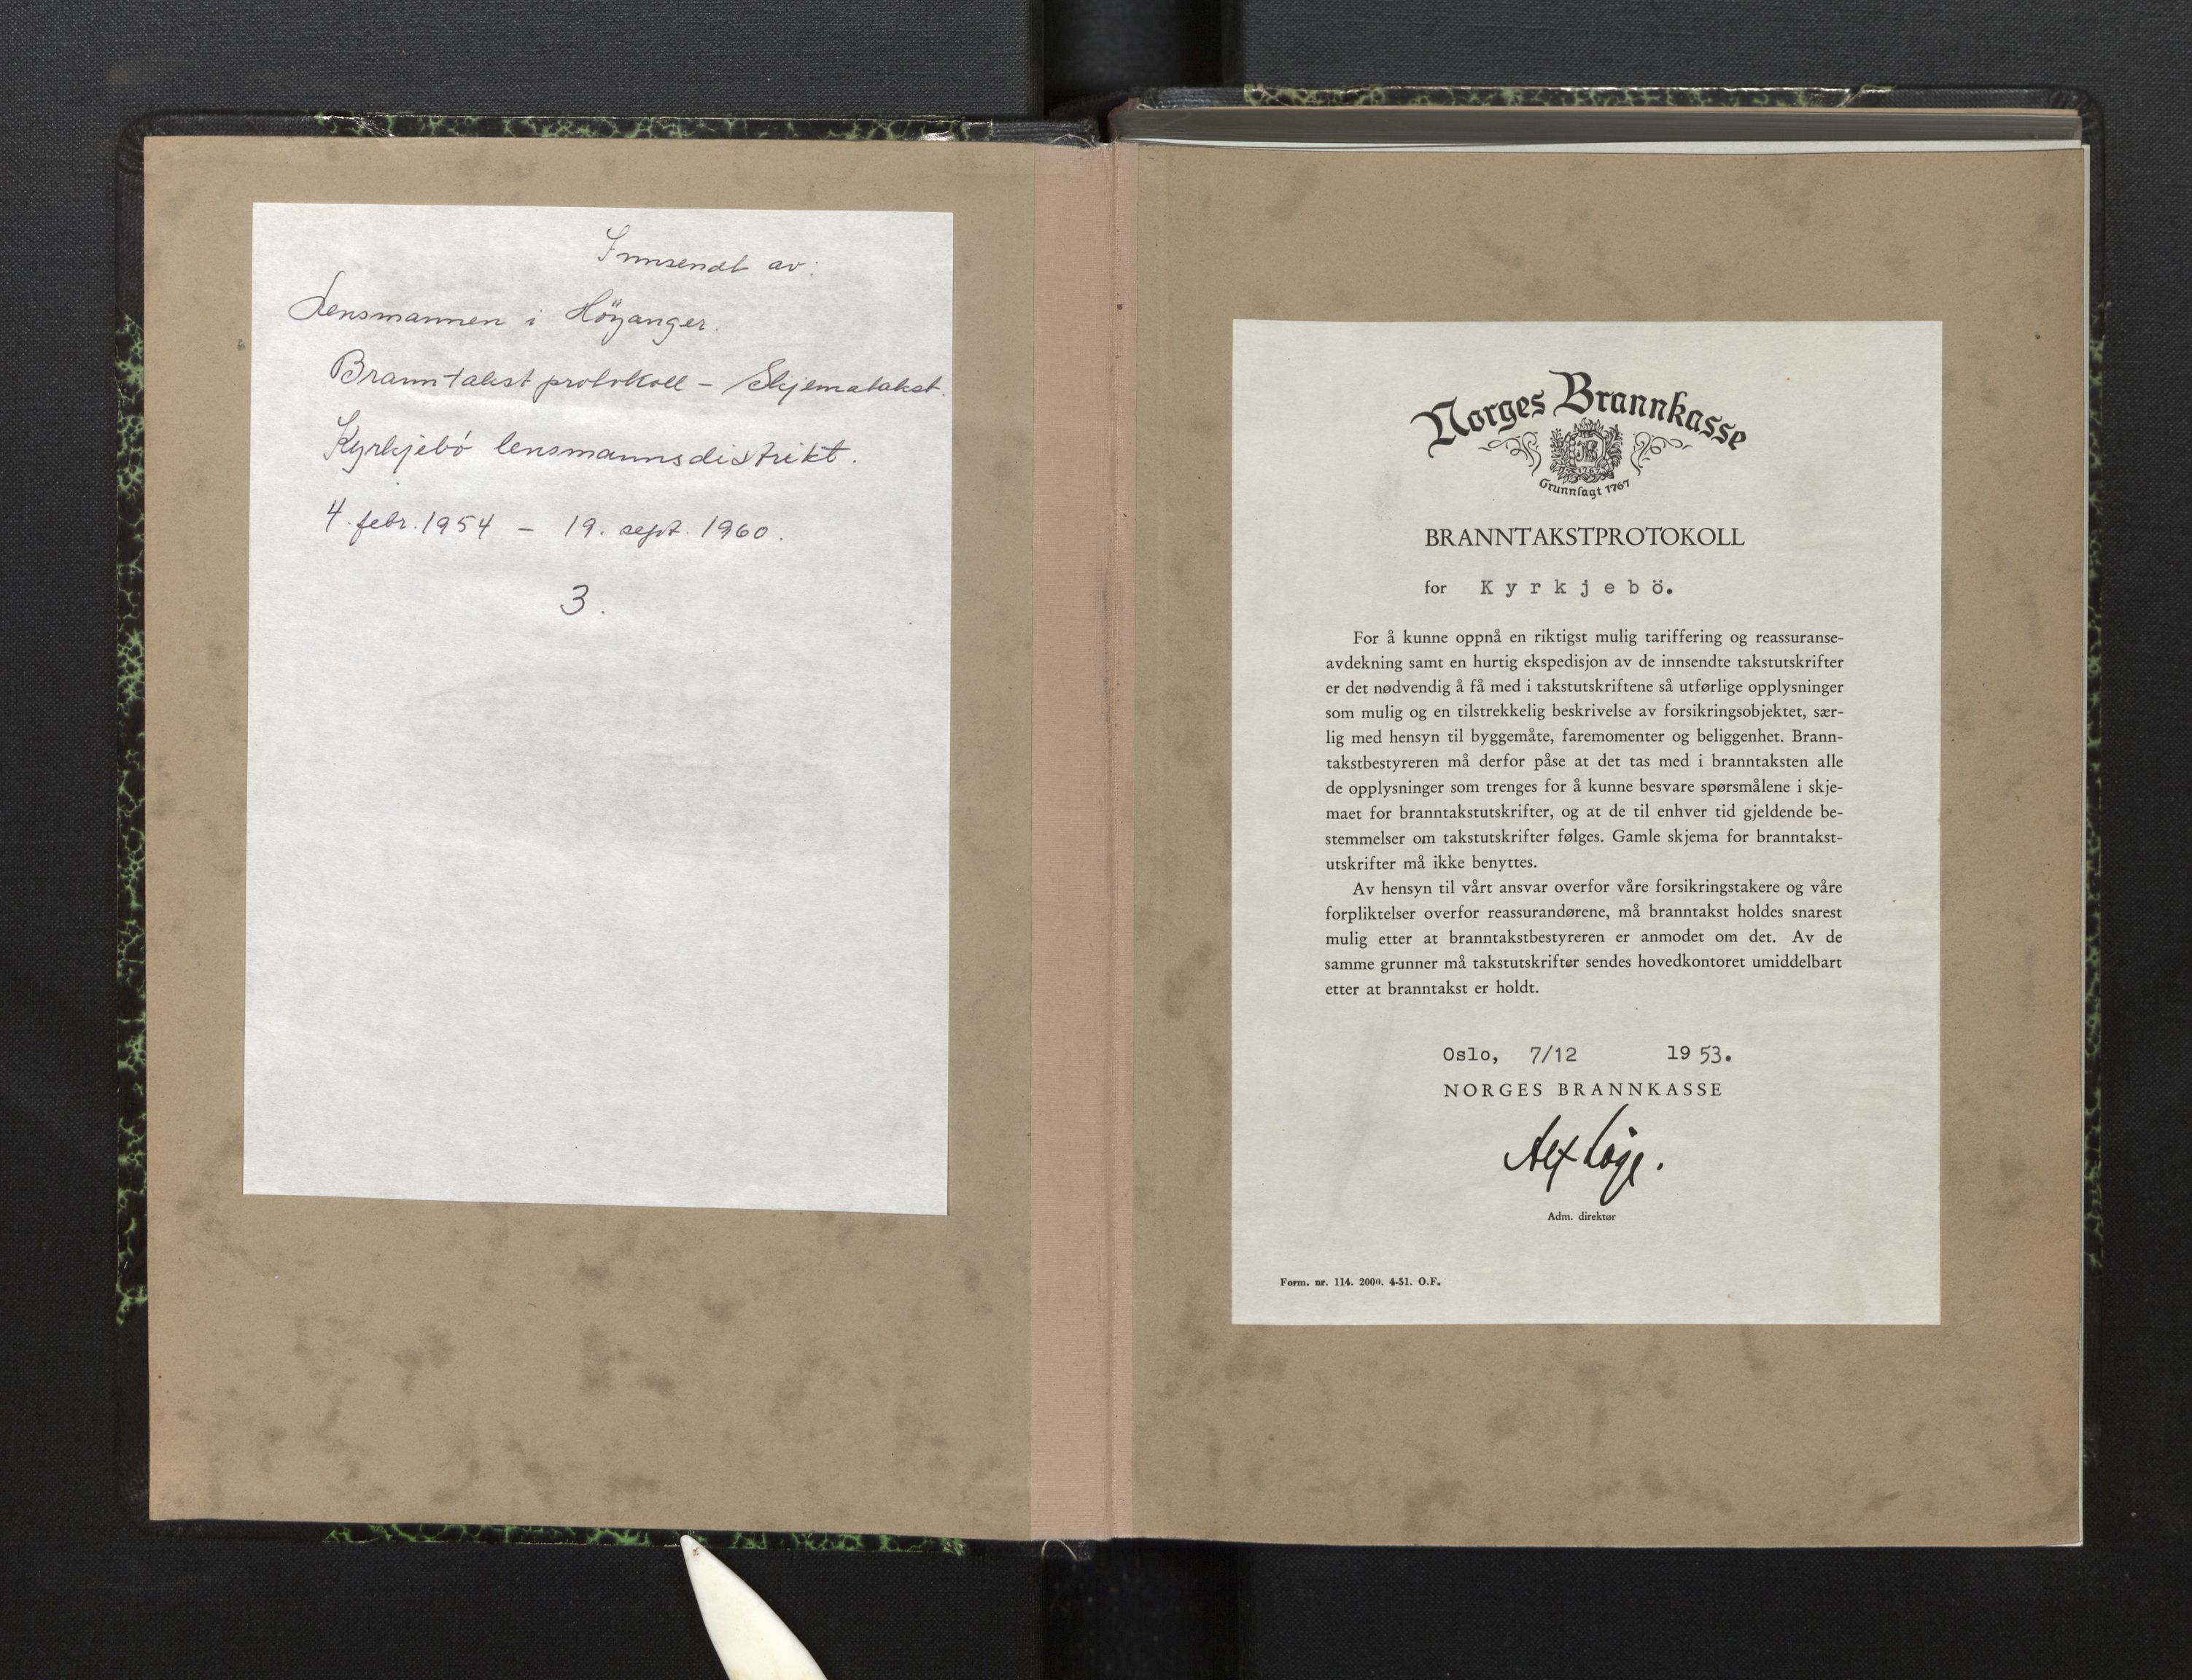 Innsendt av:
Lensmannen i Höyanger.
Branntakst protokoll – Skjematakst.
Kyrkjebö lensmannsdistrikt.
4. febr. 1954 – 19. sept. 1960.
3.
Norges Brannkasse
Grunnlagt 1767
BRANNTAKSTPROTOKOLL
for Kyrkjebö.
For å kunne oppnå en riktigst mulig tariffering og reassuranse-
avdekning samt en hurtig ekspedisjon av de innsendte takstutskrifter
er det nødvendig å få med i takstutskriftene så utførlige opplysninger
som mulig og en tilstrekkelig beskrivelse av forsikringsobjektet, sær-
lig med hensyn til byggemåte, faremomenter og beliggenhet. Brann-
takstbestyreren må derfor påse at det tas med i branntaksten alle
de opplysninger som trenges for å kunne besvare spørsmålene i skje-
maet for branntakstutskrifter, og at de til enhver tid gjeldende be-
stemmelser om takstutskrifter følges. Gamle skjema for branntakst-
utskrifter må ikke benyttes.
Av hensyn til vårt ansvar overfor våre forsikringstakere og våre
forpliktelser overfor reassurandørene, må branntakst holdes snarest
mulig etter at branntakstbestyreren er anmodet om det. Av de
samme grunner må takstutskrifter sendes hovedkontoret umiddelbart
etter at branntakst er holdt.
Oslo, 7/12 1953.
NORGES BRANNKASSE
Adm. direktør
Form. nr. 114. 2000. 4-51. O.F.